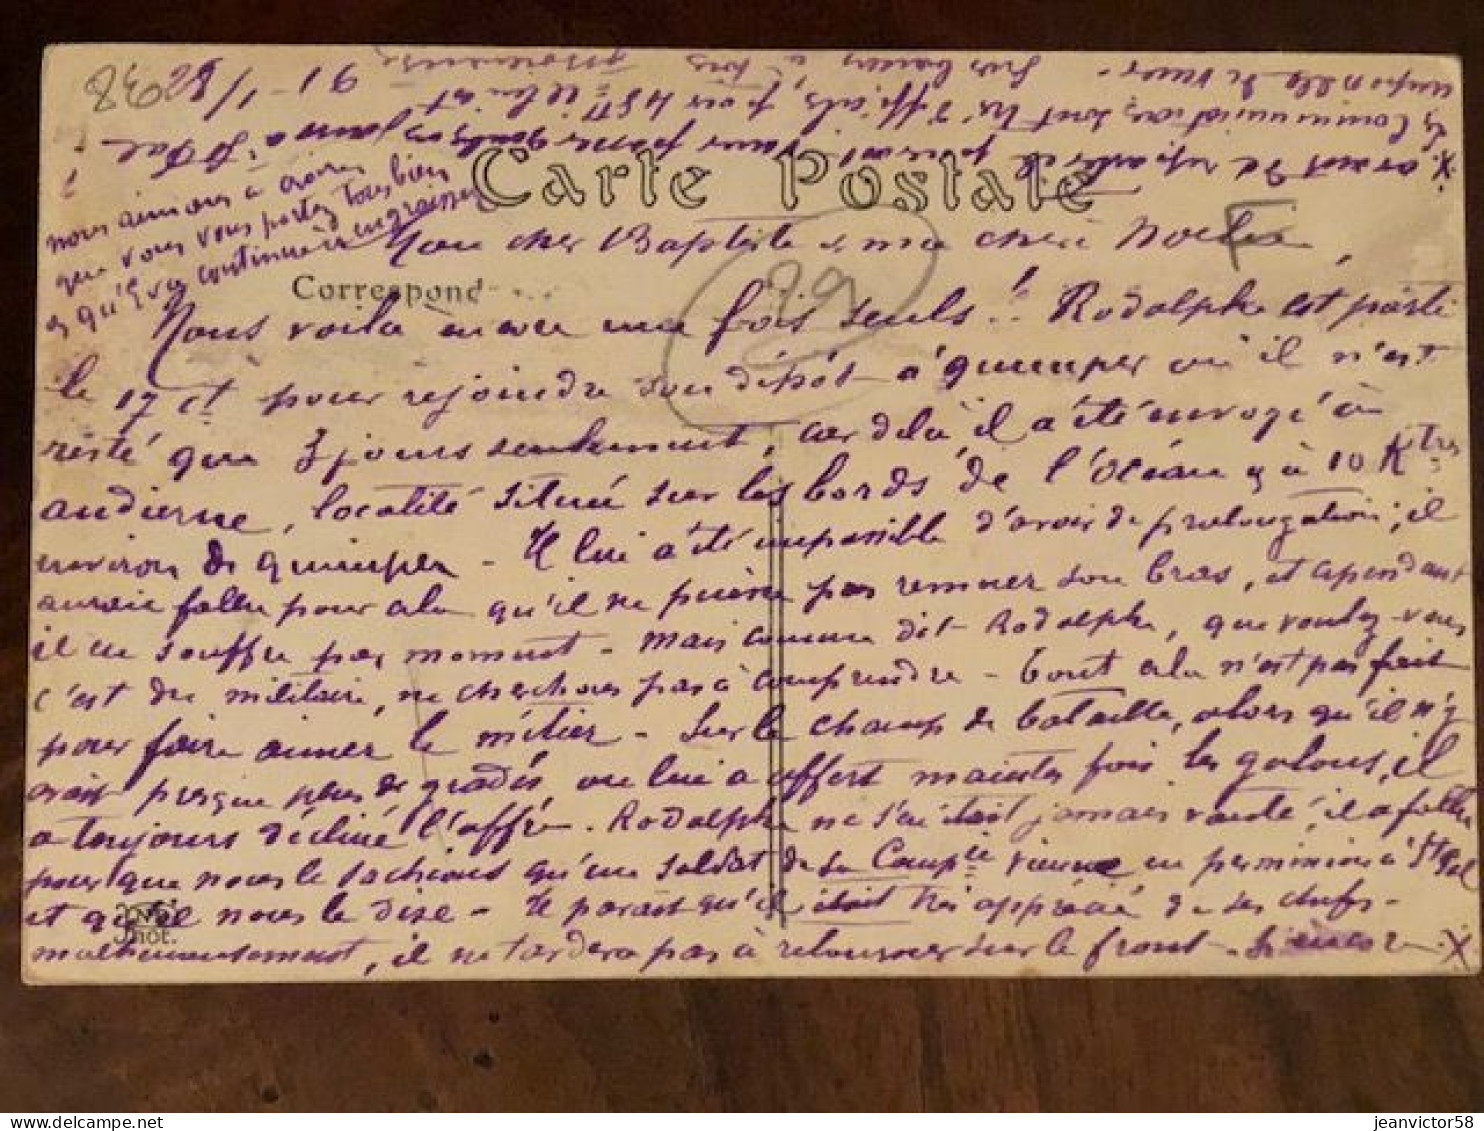 Carte Postale
Correspond
Mon cher Baptiste & ma chère
Nous voila encore une fois seuls !! Rodolphe est parti
le 17 ct pour rejoindre son dépôt à Quimper où il n'est
resté que 3 jours seulement, car de là, il a été envoyé à
audierne, localité située sur les bords de l'Océan & à 10 Ktres
environ de Quimper - Il lui a été impossible d'avoir de prolongation; il
aurait fallu pour cela qu'il ne puisse pas remuer son bras, et cependant
il en souffre par moment - Mais comme dit Rodolphe, que voulez-vous
c'est du militaire, ne cherchons pas à comprendre - Tout cela n'est pas fait
pour faire aimer le métier - Sur le champ de bataille, alors qu'il n'y
avait presque plus de gradés, on lui a offert maintes fois les galons, il
a toujours décliné l'offre. Rodolphe ne s'en était jamais vanté, il a fallu
pour que nous le sachions qu'un soldat de sa Compie vienne en permission à St Gal
et qu'il nous le dise - Il parait qu'il était très apprécié de ses chefs -
malheureusement, il ne tardera pas à retourner sur le front - Si encore X
X avant de repartir il pouvait venir passer quelques jours à St Gal !
les Communications sont très difficiles, pour 48h il lui est
impossible de venir.
nous aimons à croire
que vous vous portez tous bien
& qu'Eva continue à engraisser
Phot.
2938
29
F
jeanvictor58